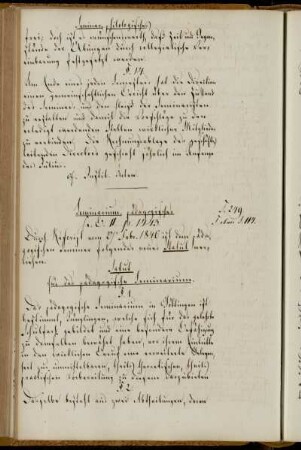 Seminar. philologisches
frei; doch ist es wünschenswerth, daß Zeit und Gegen-
stände der Uebungen durch collegialische Ver-
einbarung festgesetzt werden.
§ 17.
Am Ende eines jeden hat die Direction
einen gemeinschaftlichen Bericht über den Zustand
des Seminars und den Fleiß der Seminaristen
zu erstatten und damit die Vorschläge zu den
erledigt werdenden Stellen wirklicher Mitglieder
zu verbinden. Die Rechnungsablage des geschäfts-
leitenden Directors geschieht jährlich im Anfange
des Julius.
Seminarium pädagogisches
Durch Rescript vom Febr. 1846 ist dem päda-
gogischen Seminar folgendes neue Statut ver-
liehen.
Statut
für das pädagogische Seminarium.
§ 1.
Das pädagogische Seminarium in Göttingen ist
bestimmt, Jünglingen, welche sich für das gelehrte
Schulfach gebildet und eine besondere Befähigung
zu demselben bewährt haben, vor ihrem Eintritte
in den wirklichen Beruf eine erweiterte Gelegen-
heit zur unmittelbaren, theils theoretischen, theils
praktischen Vorbereitung zu diesem darzubieten.
§ 2.
Dasselbe besteht aus zwei Abtheilungen, deren